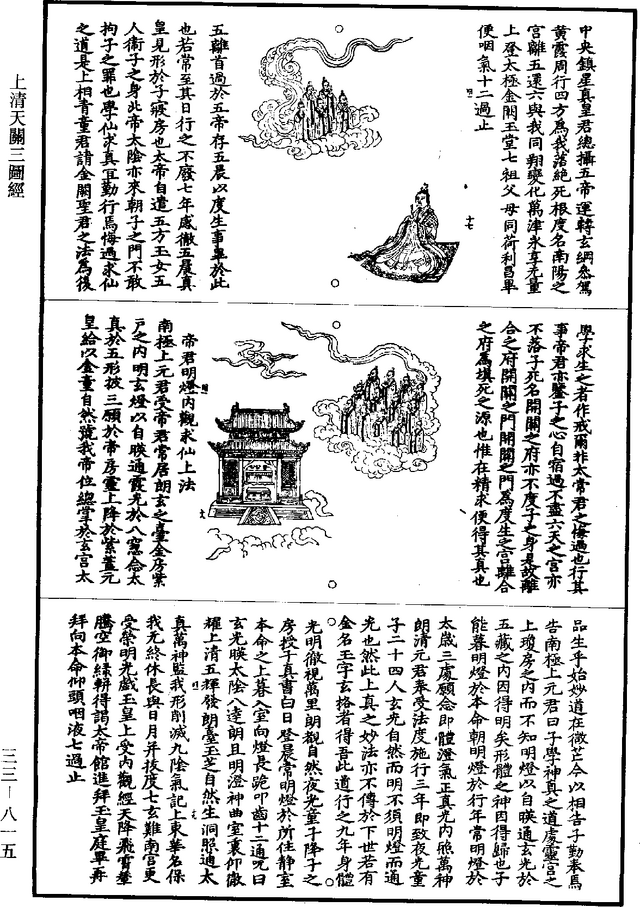 上清天關三圖經
中央鎮星真皇君總攝五帝運轉玄綱參駕
黃霞周行四方為我落絕死根度名南陽之
宮離五還六與我同翔變化萬津永享元量
上登太極金闕玉堂七祖父母同荷利昌畢
便咽氣十二過止
十七
五離首過於五帝存五晨以度生事畢於此
也若常至其日行之不廢七年感徹五晨真
皇見形於子寢房也太帝自遣五方玉女五
人衛子之身此帝太陰亦來朝子之門不敢
拘子之罪也學仙求真宜勤行焉悔過求仙
之道是上相青童君請金闕聖君之法為後
學求生之者作戒爾非太常君之悔過也行其
事帝君亦鑒子之心自宿過不盡六天之宮亦
不落子死名開關之府亦不度子之身是故離
合之府開關之門開關之門為度生之宮離合
之府為填死之源也惟在精求便得其真也
帝君明燈內觀求仙上法
南極上元君受帝君常居朗玄之臺金房紫
戶之內明玄燈以自映通霞光於八窓念太
真於五形披三願於帝房靈上降於紫蓋元
皇給以金童自然號我帝位總掌於玄宮太
十八
品生乎始妙道在微芒今以相告子勤奉焉
告南極上元君曰子學神真之道處靈宮之
上瓊房之內而不知明燈以自映通玄光於
五藏之內因得明矣形體之神因得歸也子
能暮明燈於本命朝明燈於行年常明燈於
太歲三處願念即體澄氣正真光內照萬神
朗清元君奉受法度施行三年即致夜光童
子二十四人玄光自然而明不須明燈而通
光也然此上真之妙法亦不傳於下世若有
金名玉字玄格者得吾此道行之九年身體
光明徹視萬里朗觀自然夜光童子降子之
房授子真書白日登晨常明燈於所住靜室
本命之上暮入室向燈長跪叩齒十二通呪曰
玄光映太陰八達朗且明澄神曲室裏仰徹
曜上清五輝發朗臺玉芝自然生洞照通太
真萬神監我形削滅九陰氣記上東華名保
我元終休長與日月并拔度七玄難南宮更
受榮明光戲玉皇上受內觀經天降飛霄輦
騰空御綠軿得謁太帝館進拜玉皇庭畢再
拜向本命仰頭咽液七過止
三三－八一五